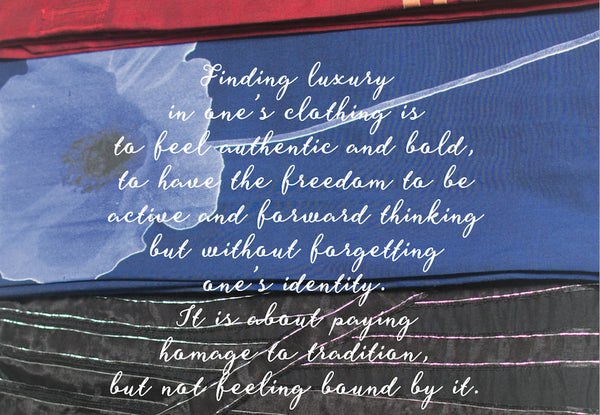 Finding luxury
in one's clothing is
to feel authentic and bold,
to have the freedom to be
active and forward thinking
but without forgetting
one's identity.
It is about paying
homage to tradition,
but not feeling bound by it.